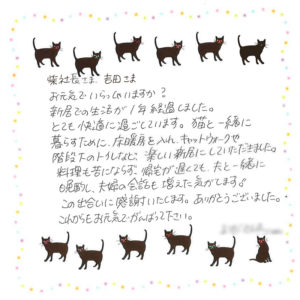 柴社長さま 吉田さま
お元気でいらっしゃいますか?
新居での生活が1年経過しました。
とても快適に過ごしています。猫と一緒に
暮らすために、床暖房を入れ、キャットウォークや
階段下のトイレなど、楽しい新居にしていただきました。
料理も苦にならず、帰宅が遅くても、夫と一緒に
晩酌し、夫婦の会話も増えた気がします♪
この出会いに感謝いたします。ありがとうございました。
これからもお元気でがんばって下さい。